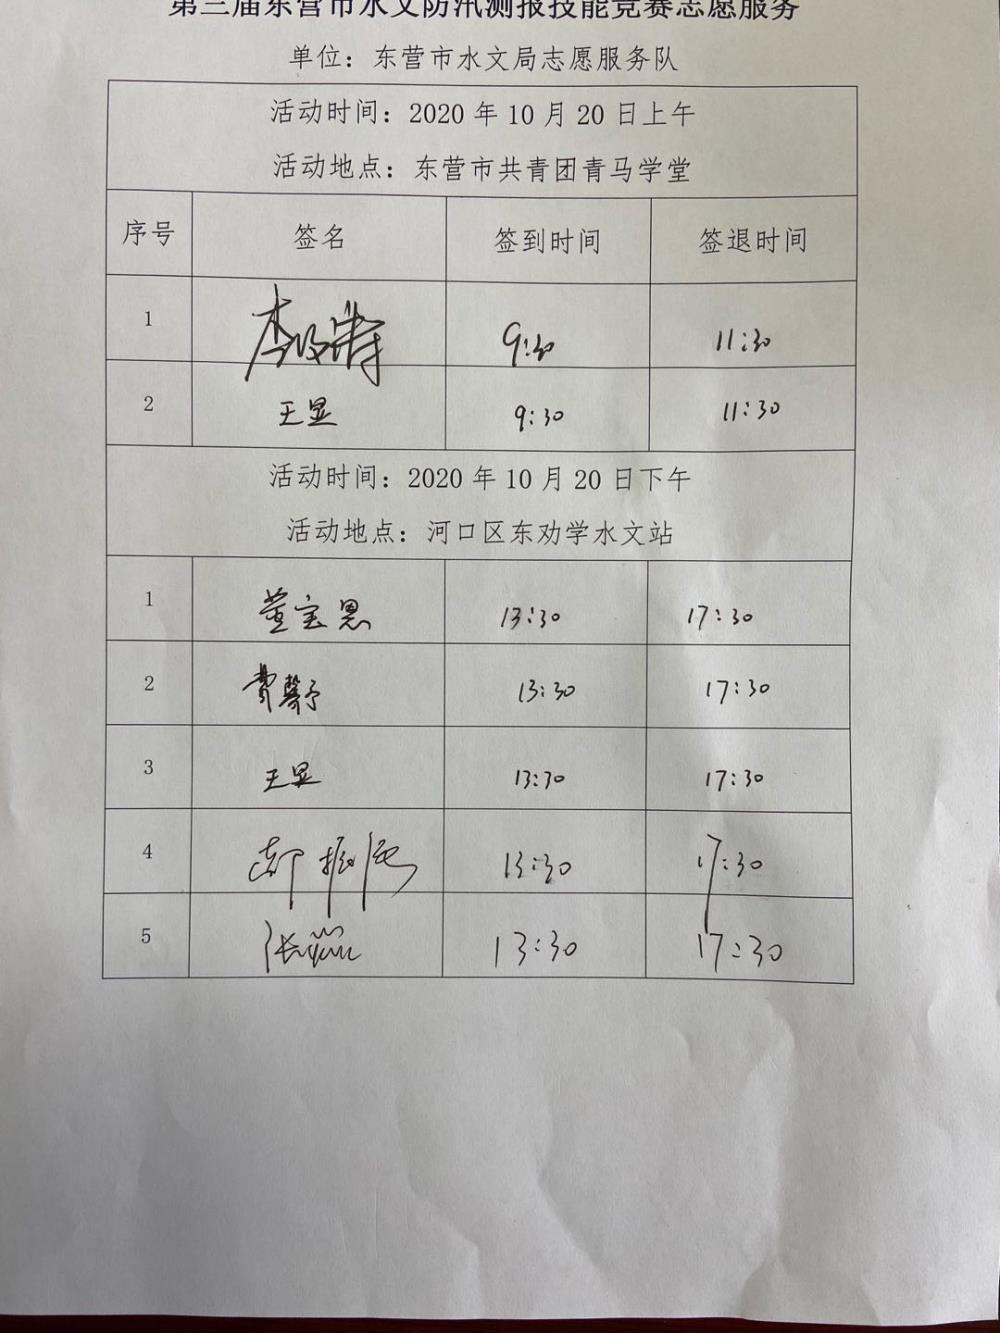 第三届东营市水文防汛测报技能竞赛志愿服务
单位：东营市水文局志愿服务队
活动时间：2020 年 10 月 20 日上午
活动地点：东营市共青团青马学堂
序号 签名 签到时间 签退时间
1 9:30 11:30
2 王昱 9:30 11:30
活动时间：2020 年 10 月 20 日下午
活动地点：河口区东劝学水文站
1 董宝恩 13:30 17:30
2 费馨予 13:30 17:30
3 王昱 13:30 17:30
4 13:30 17:30
5 13:30 17:30